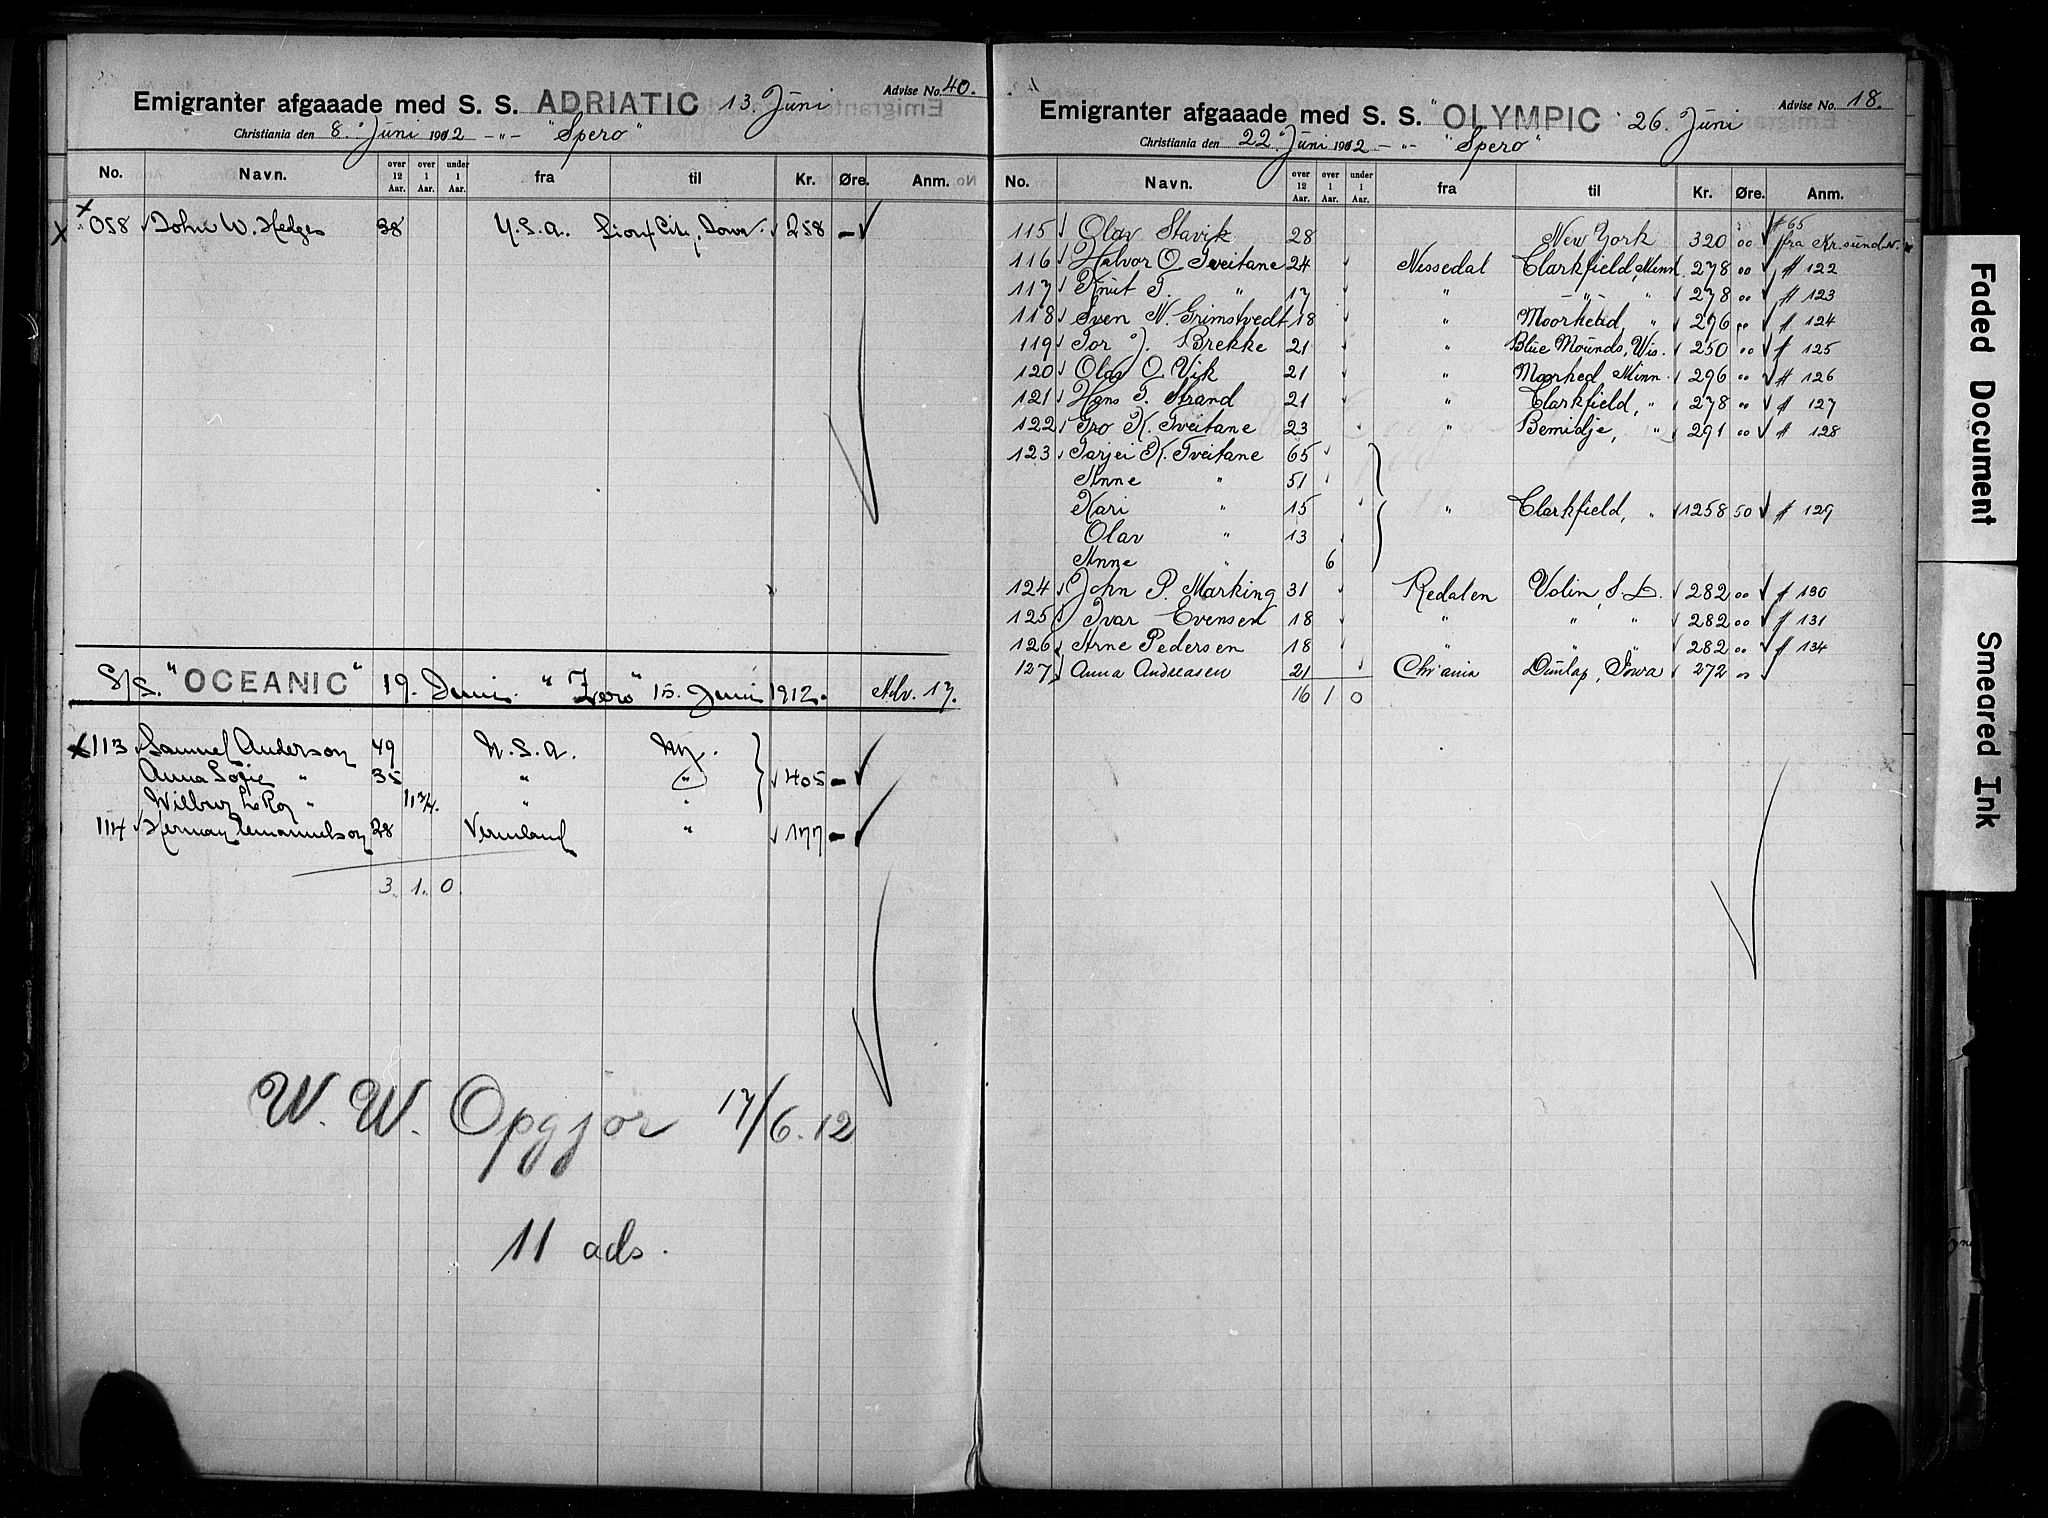 Advise No. 40.
Emigranter afgaaade med S. S. ADRIATIC 13. Juni
Christiania den 8. Juni 1912 -"- "Spero"
No. Navn. over 12 Aar. over 1 Aar. under 1 Aar. fra til Kr. Øre. Anm.
058 John W. Hedges 38 U.S.A. Sioux City, Iowa. 258 -
S/S. "OCEANIC" 19. Juni. "Zero" 15. Juni 1912. Adv. 17.
113 Samuel Anderson 49 U.S.A. NY.
Anna Sofie " 35 " " 405 -
Wilbur LeRoy " 11 3/4. " "
114 Herman Emanuelson 28 Vermland " 177 -
3. 1. 0.
W. W. Opgjör 17/6.12
11 ads.
Advise No. 18.
Emigranter afgaaade med S. S. "OLYMPIC" 26. Juni
Christiania den 22. Juni 1912 -"- "Spero"
No. Navn. over 12 Aar. over 1 Aar. under 1 Aar. fra til Kr. Øre. Anm.
115 Olav Stavik 28 New York 320 00 # 65 fra Kr.sund N.
116 Halvor O Tveitane 24 Nissedal Clarkfield, Minn. 278 00 # 122
117 Knut T. " 17 " -"- " 278 00 # 123
118 Sven N. Grimstvedt 18 " Moorhead, " 296 00 # 124
119 Tor J. Brekke 21 " Blue Mounds, Wis. 250 00 # 125
120 Olav O Vik 21 " Moorhed Minn. 296 00 # 126
121 Hans T. Strand 21 " Clarkfield, " 278 00 # 127
122 Gro K. Tveitane 23 " Bemidje, " 291 00 # 128
123 Tarjei K. Tveitane 65
Anne " 51
Kari " 15 " Clarkfield, " 1258 50 # 129
Olav " 13
Anne " 6
124 John P. Marking 31 Redalen Volin, S.D. 282 00 # 130
125 Ivar Evensen 18 " " " 282 00 # 131
126 Arne Pedersen 18 " " " 282 00 # 134
127 Anna Andreasen 21 Chr'ania Dunlap, Iowa 272 00
16 1 0
Faded Document
Smeared Ink